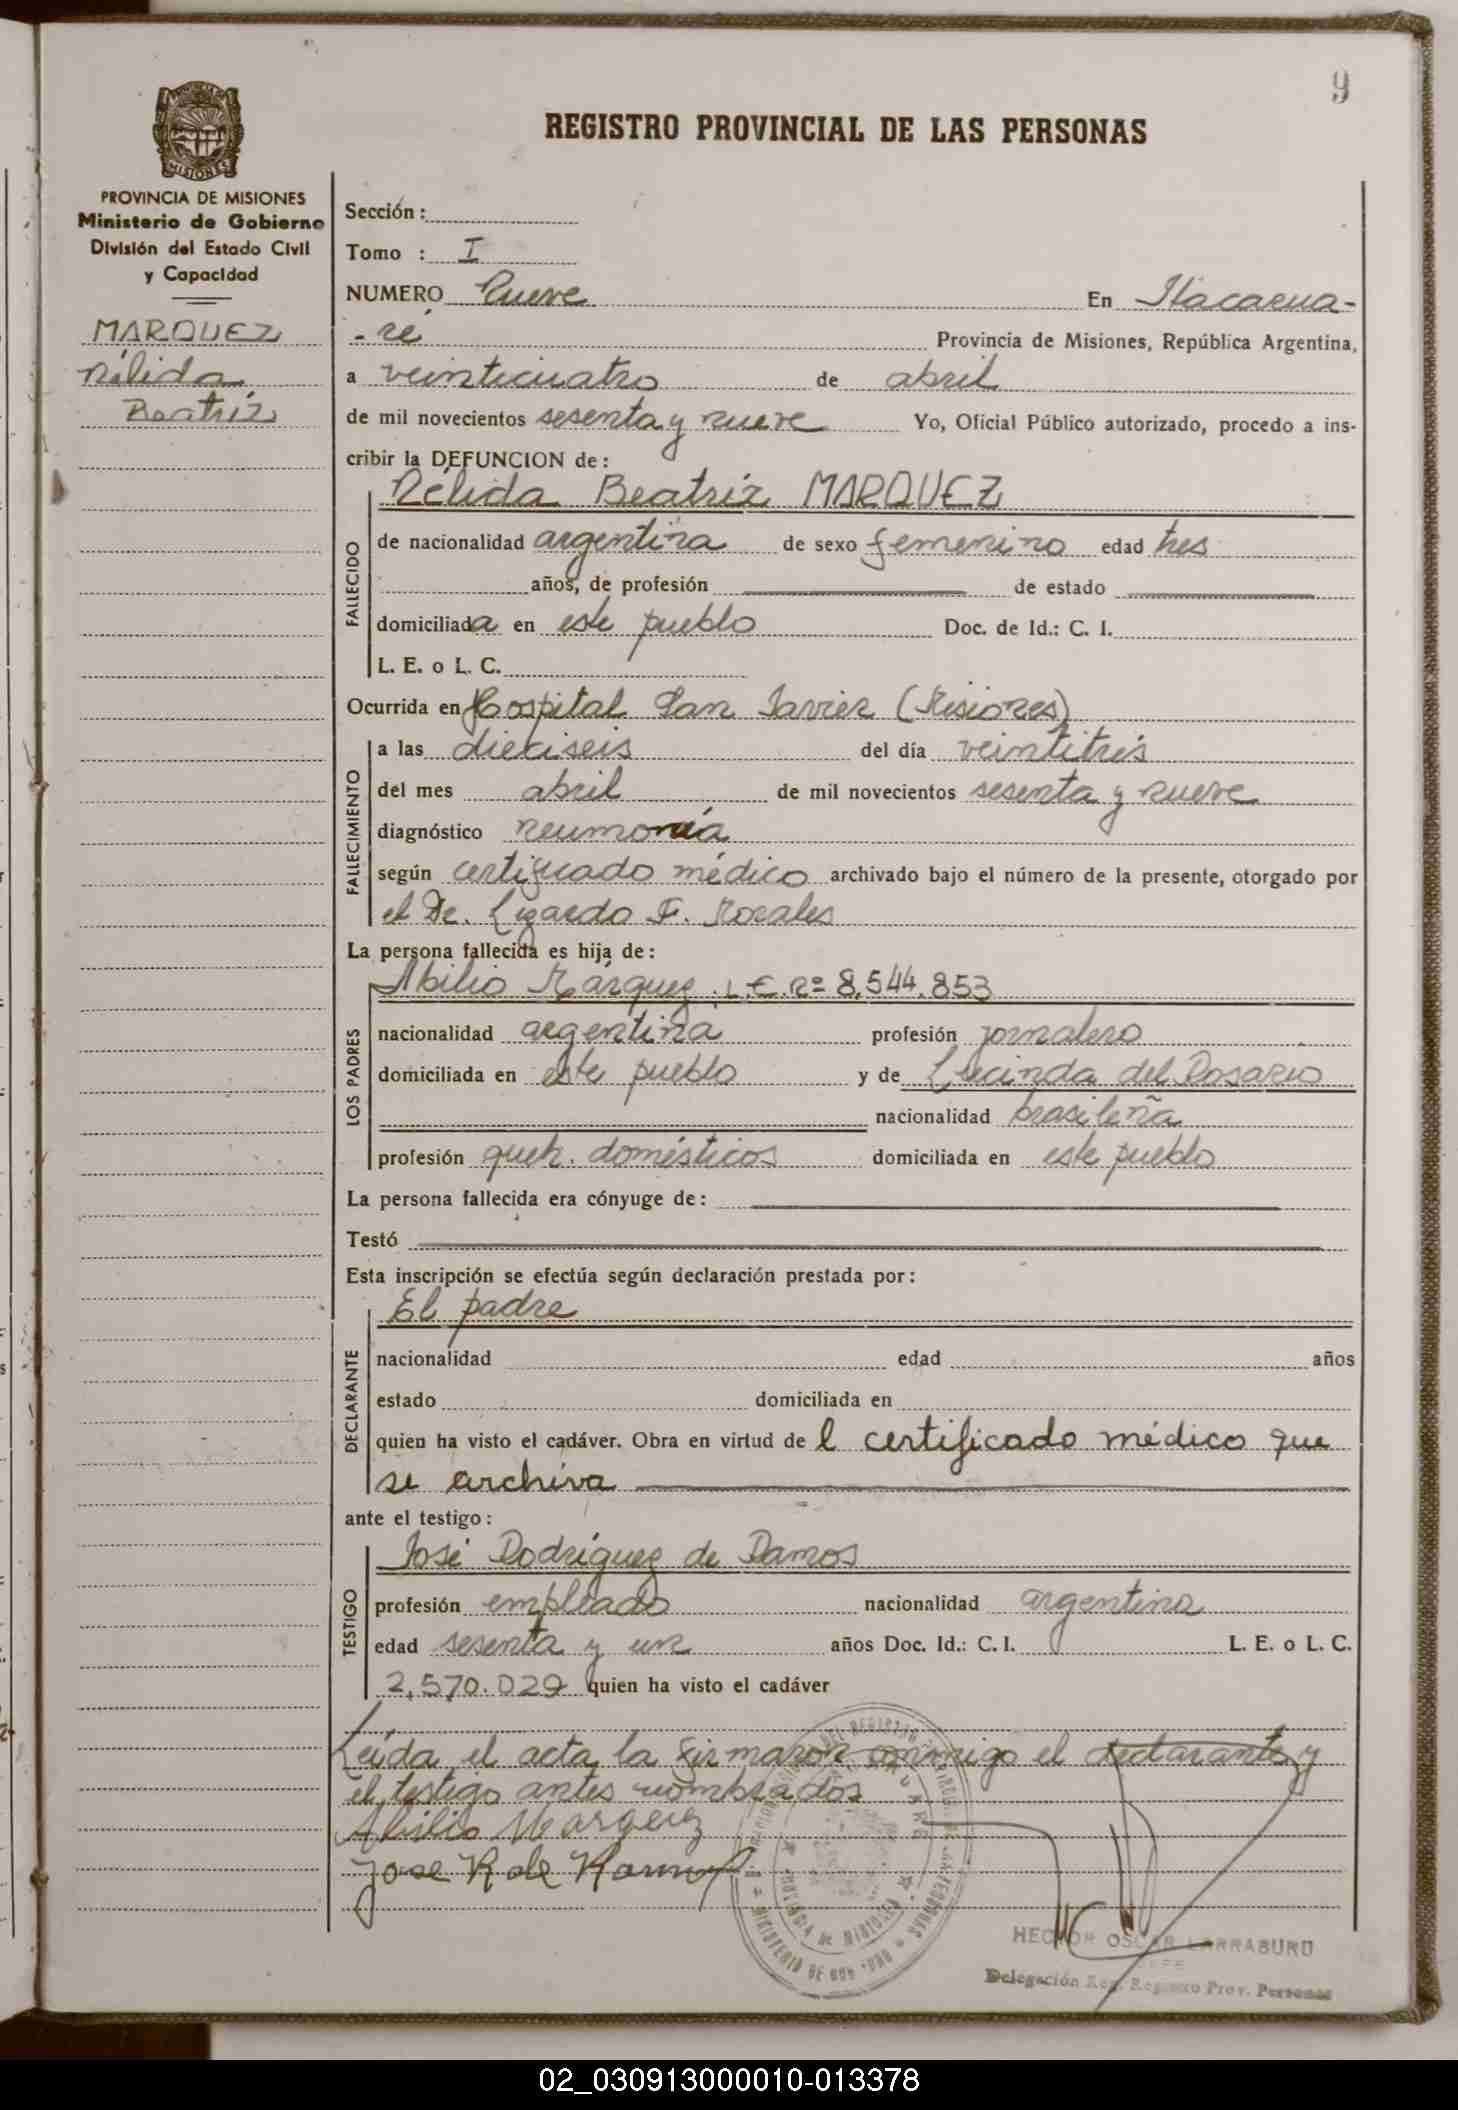 9
REGISTRO PROVINCIAL DE LAS PERSONAS
MISIONES
PROVINCIA DE MISIONES
Ministerio de Gobierno
División del Estado Civil
y Capacidad
MARQUEZ
Nélida
Beatriz
Sección:
Tomo : I
NUMERO Nueve En Itacarua-
-ré Provincia de Misiones, República Argentina,
a veinticuatro de abril
de mil novecientos sesenta y nueve Yo, Oficial Público autorizado, procedo a ins-
cribir la DEFUNCION de:
Nélida Beatriz MARQUEZ
FALLECIDO
de nacionalidad argentina de sexo femenino edad tres
años, de profesión de estado
domiciliada en este pueblo Doc. de Id.: C. I.
L. E. o L. C.
Ocurrida en Hospital San Javier (Misiones)
FALLECIMIENTO
a las dieciseis del día veintitrés
del mes abril de mil novecientos sesenta y nueve
diagnóstico neumonía
según certificado médico archivado bajo el número de la presente, otorgado por
el Dr. Lizardo F. Morales
La persona fallecida es hija de:
LOS PADRES
Abilio Márquez L.E.Nº 8,544.853
nacionalidad argentina profesión jornalero
domiciliada en este pueblo y de Lucinda del Rosario
nacionalidad brasileña
profesión queh. domésticos domiciliada en este pueblo
La persona fallecida era cónyuge de:
Testó
Esta inscripción se efectúa según declaración prestada por:
DECLARANTE
El padre
nacionalidad edad años
estado domiciliada en
quien ha visto el cadáver. Obra en virtud de l certificado médico que
se archiva
ante el testigo:
TESTIGO
José Rodríguez de Ramos
profesión empleado nacionalidad argentina
edad sesenta y un años Doc. Id.: C. I. L. E. o L. C.
2,570.029 quien ha visto el cadáver
Leída el acta la firmaron conmigo el declarante y
el testigo antes nombrados
Abilio Margeuz
Jose R de Ramos
PROVINCIA DE MISIONES
MINISTERIO DE GOB.
HECTOR OSCAR LARRABURU
JEFE
Delegación Reg. Registro Prov. Personas
02_030913000010-013378